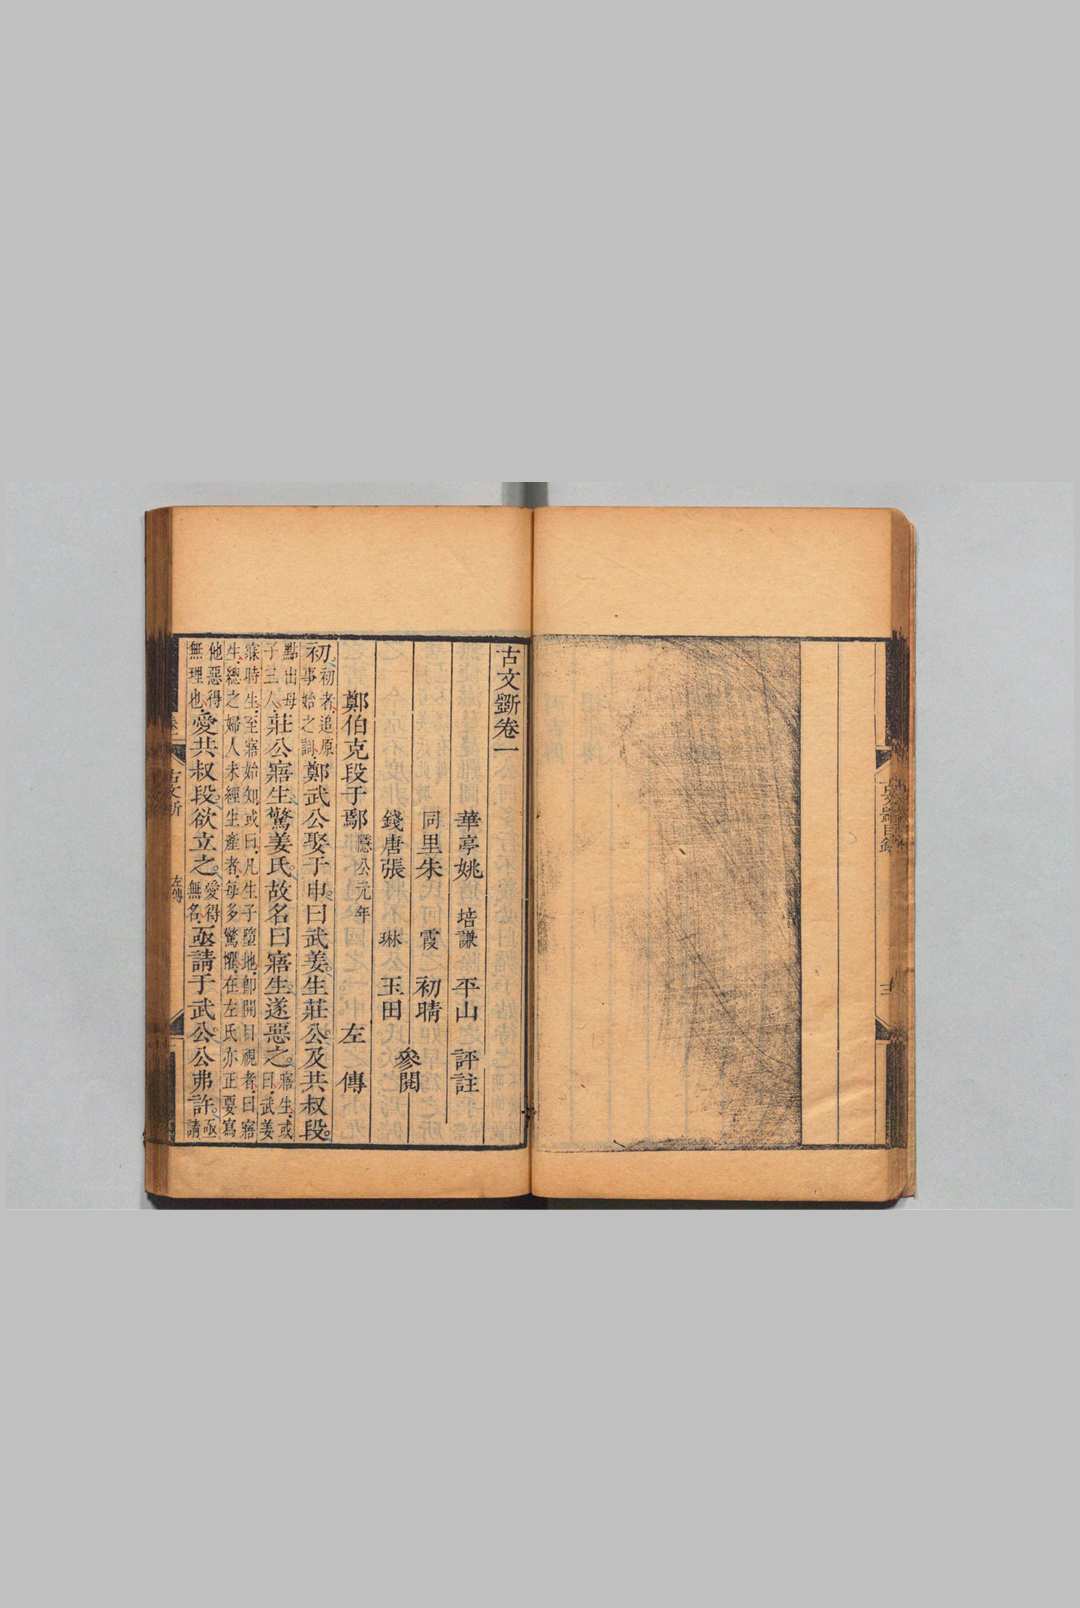 古文斲卷一
華亭姚培謙平山評註
同里朱霞初晴
參閱
錢唐張琳玉田
鄭伯克段于鄢隱公元年左傳
初初者追原事始之詞鄭武公娶于申曰武姜生莊公及共叔段
點出母子三人莊公寤生驚姜氏故名曰寤生遂惡之寤生或曰武姜
寐時生至寤始知或曰凡生子墮地卽開目視者曰寤
生總之婦人未經生產者每多驚懼在左氏亦正要寫
他惡得無理也愛共叔段欲立之愛得無名亟請于武公公弗許亟請
古文斲
左傳